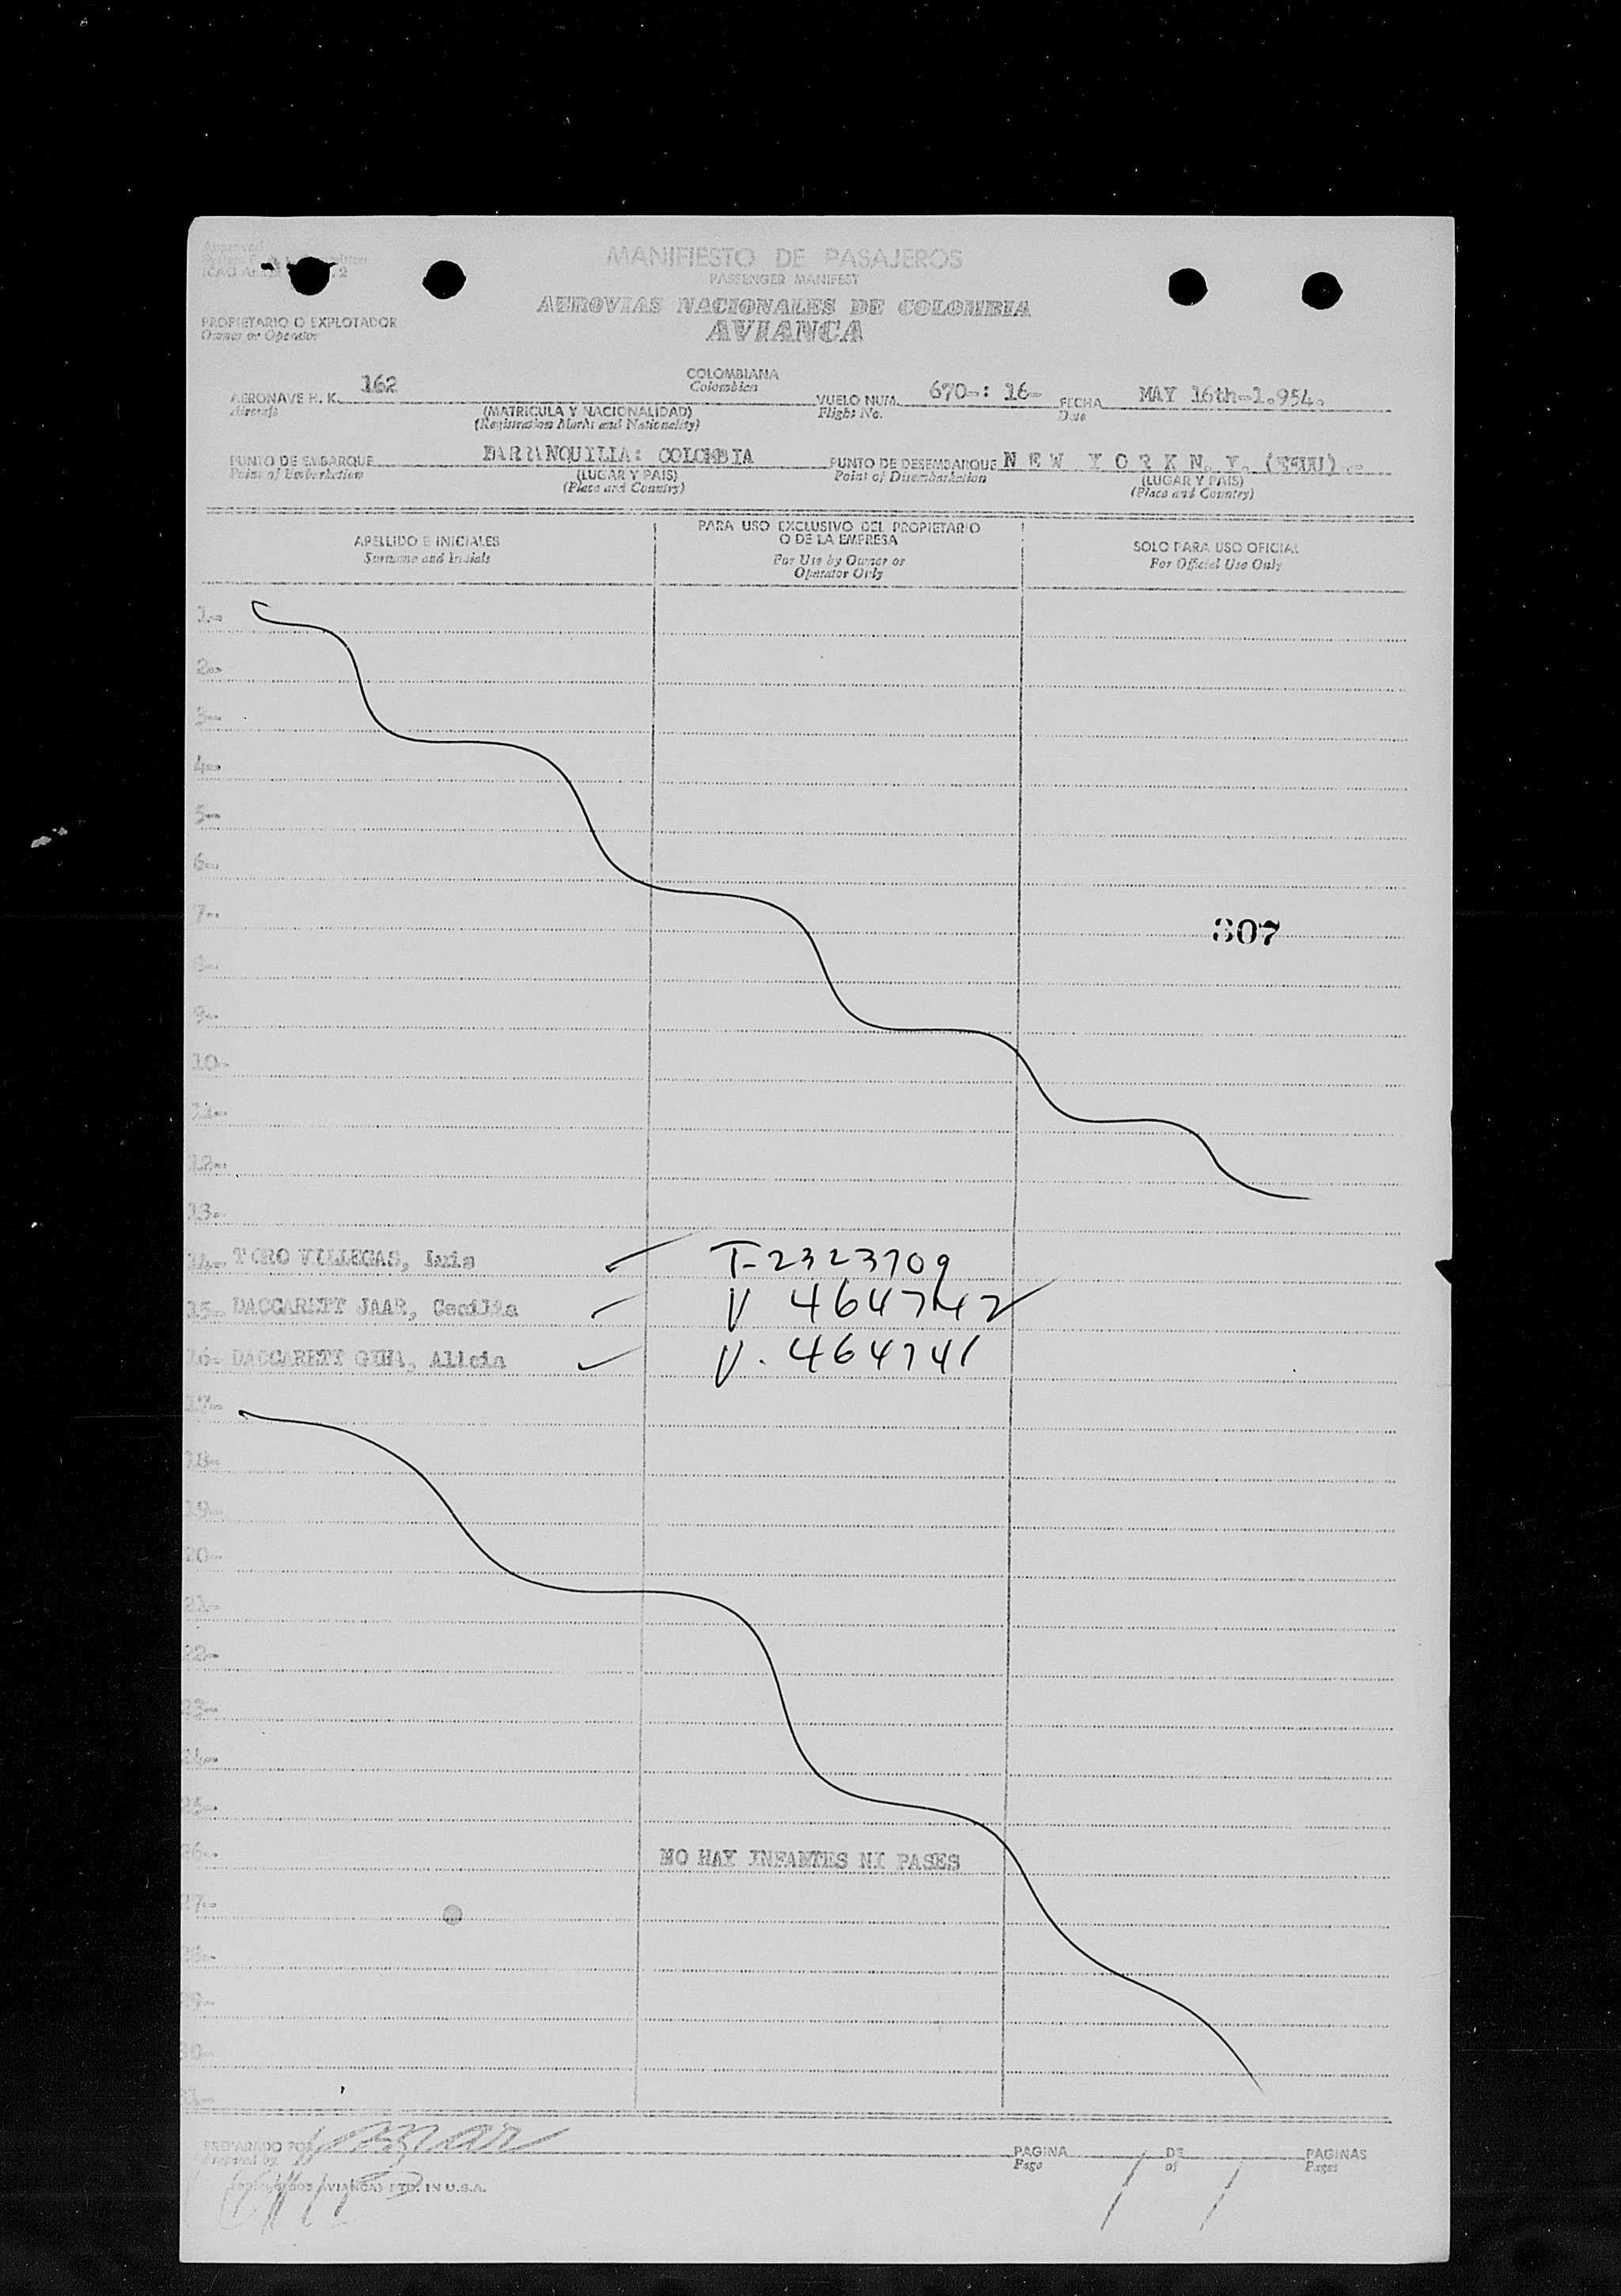 Approved
MANIFIESTO DE PASAJEROS
PASSENGER MANIFEST
AEROVIAS NACIONALES DE COLOMBIA
AVIANCA
PROPIETARIO O EXPLOTADOR
Owner or Operator
COLOMBIANA
Colombian
AERONAVE H. K. 162 VUELO NUM. 670-: 16- FECHA MAY 16th-1.954.
Aircraft (MATRICULA Y NACIONALIDAD) Flight No. Date
(Registration Marks and Nationality)
PUNTO DE EMBARQUE BARRANQUILLA: COLOMBIA PUNTO DE DESEMBARQUE N E W Y O R K N. Y. (EEUU).-
Point of Embarkation (LUGAR Y PAIS) Point of Disembarkation (LUGAR Y PAIS)
(Place and Country) (Place and Country)
APELLIDO E INICIALES PARA USO EXCLUSIVO DEL PROPIETARIO O DE LA EMPRESA SOLO PARA USO OFICIAL
Surname and Initials For Use by Owner or Operator Only For Official Use Only
1.-
2.-
3.-
4.-
5.-
6.-
7.-
307
8.-
9.-
10-
11.-
12.-
13.-
14.- TORO VILLEGAS, Luis T-2323709
15- DACCARETT JAAR, Cecilia V 464742
16- DACCARETT GIHA, Alicia V. 464741
17-
18-
19-
20-
21-
22-
23-
24-
25-
26- NO HAY INFANTES NI PASES
27-
28-
29-
30-
31-
PREPARADO POR PAGINA 1 DE 1 PAGINAS
Prepared by Page of Pages
(AVIANCA) PTD. IN U.S.A.